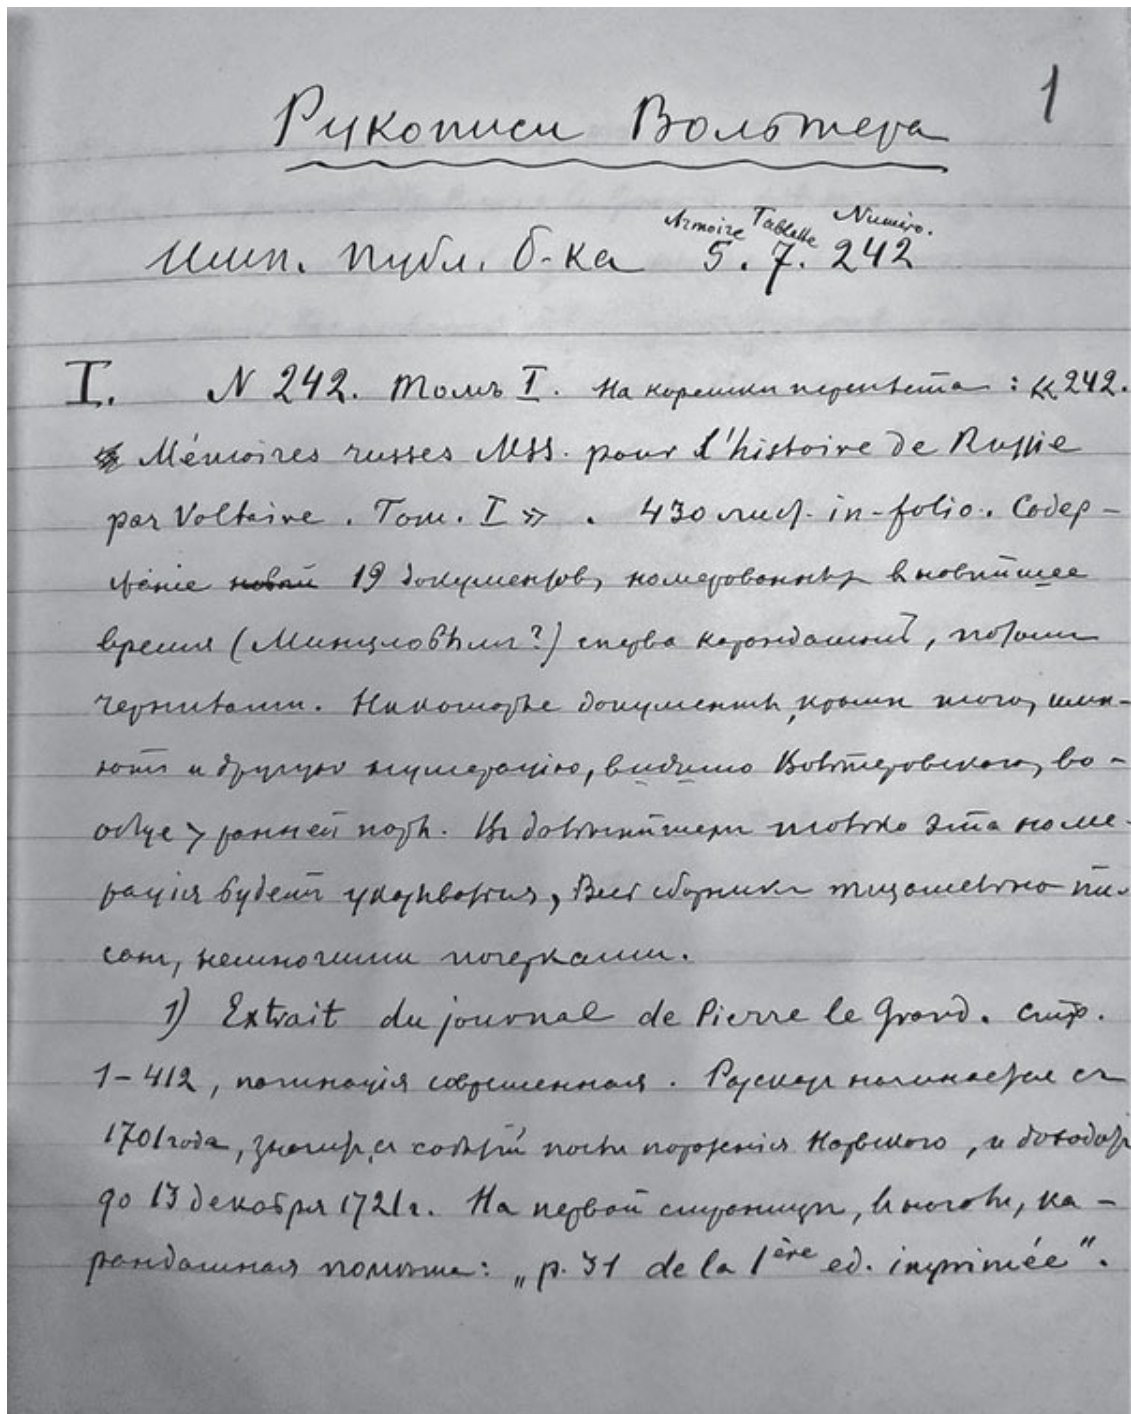 1
Рукописи Вольтера
Armoire Tablette Numéro.
Имп. публ. б-ка 5. 7. 242
I. N 242. Томъ I. На корешкѣ переплета: «242.
Mémoires russes MSS. pour l'histoire de Russie
par Voltaire. Tom. I». 430 лист. in-folio. Содер-
жаніе новѣй 19 документовъ, номерованныхъ въ новѣйшее
время (Минцловымъ?) сперва карандашемъ, потомъ
чернилами. Нѣкоторые документы, кромѣ того, имѣ-
ютъ и другую нумерацію, видимо Вольтеровскую, во-
ранней поры. Въ дальнѣйшемъ только эта номе-
рація будетъ указываться, Весь сборникъ тщательно пи-
санъ, немногими почерками.
1) Extrait du journal de Pierre le Grand. Стр.
1-412, пагинація современная. Разсказъ начинается съ
1701 года, значитъ, съ событій послѣ пораженія Нарвского, и доводитъ
до 13 декабря 1721 г. На первой страницѣ, внизу, ка-
рандашная помѣтка: „p. 31 de la 1ère ed. imprimée".